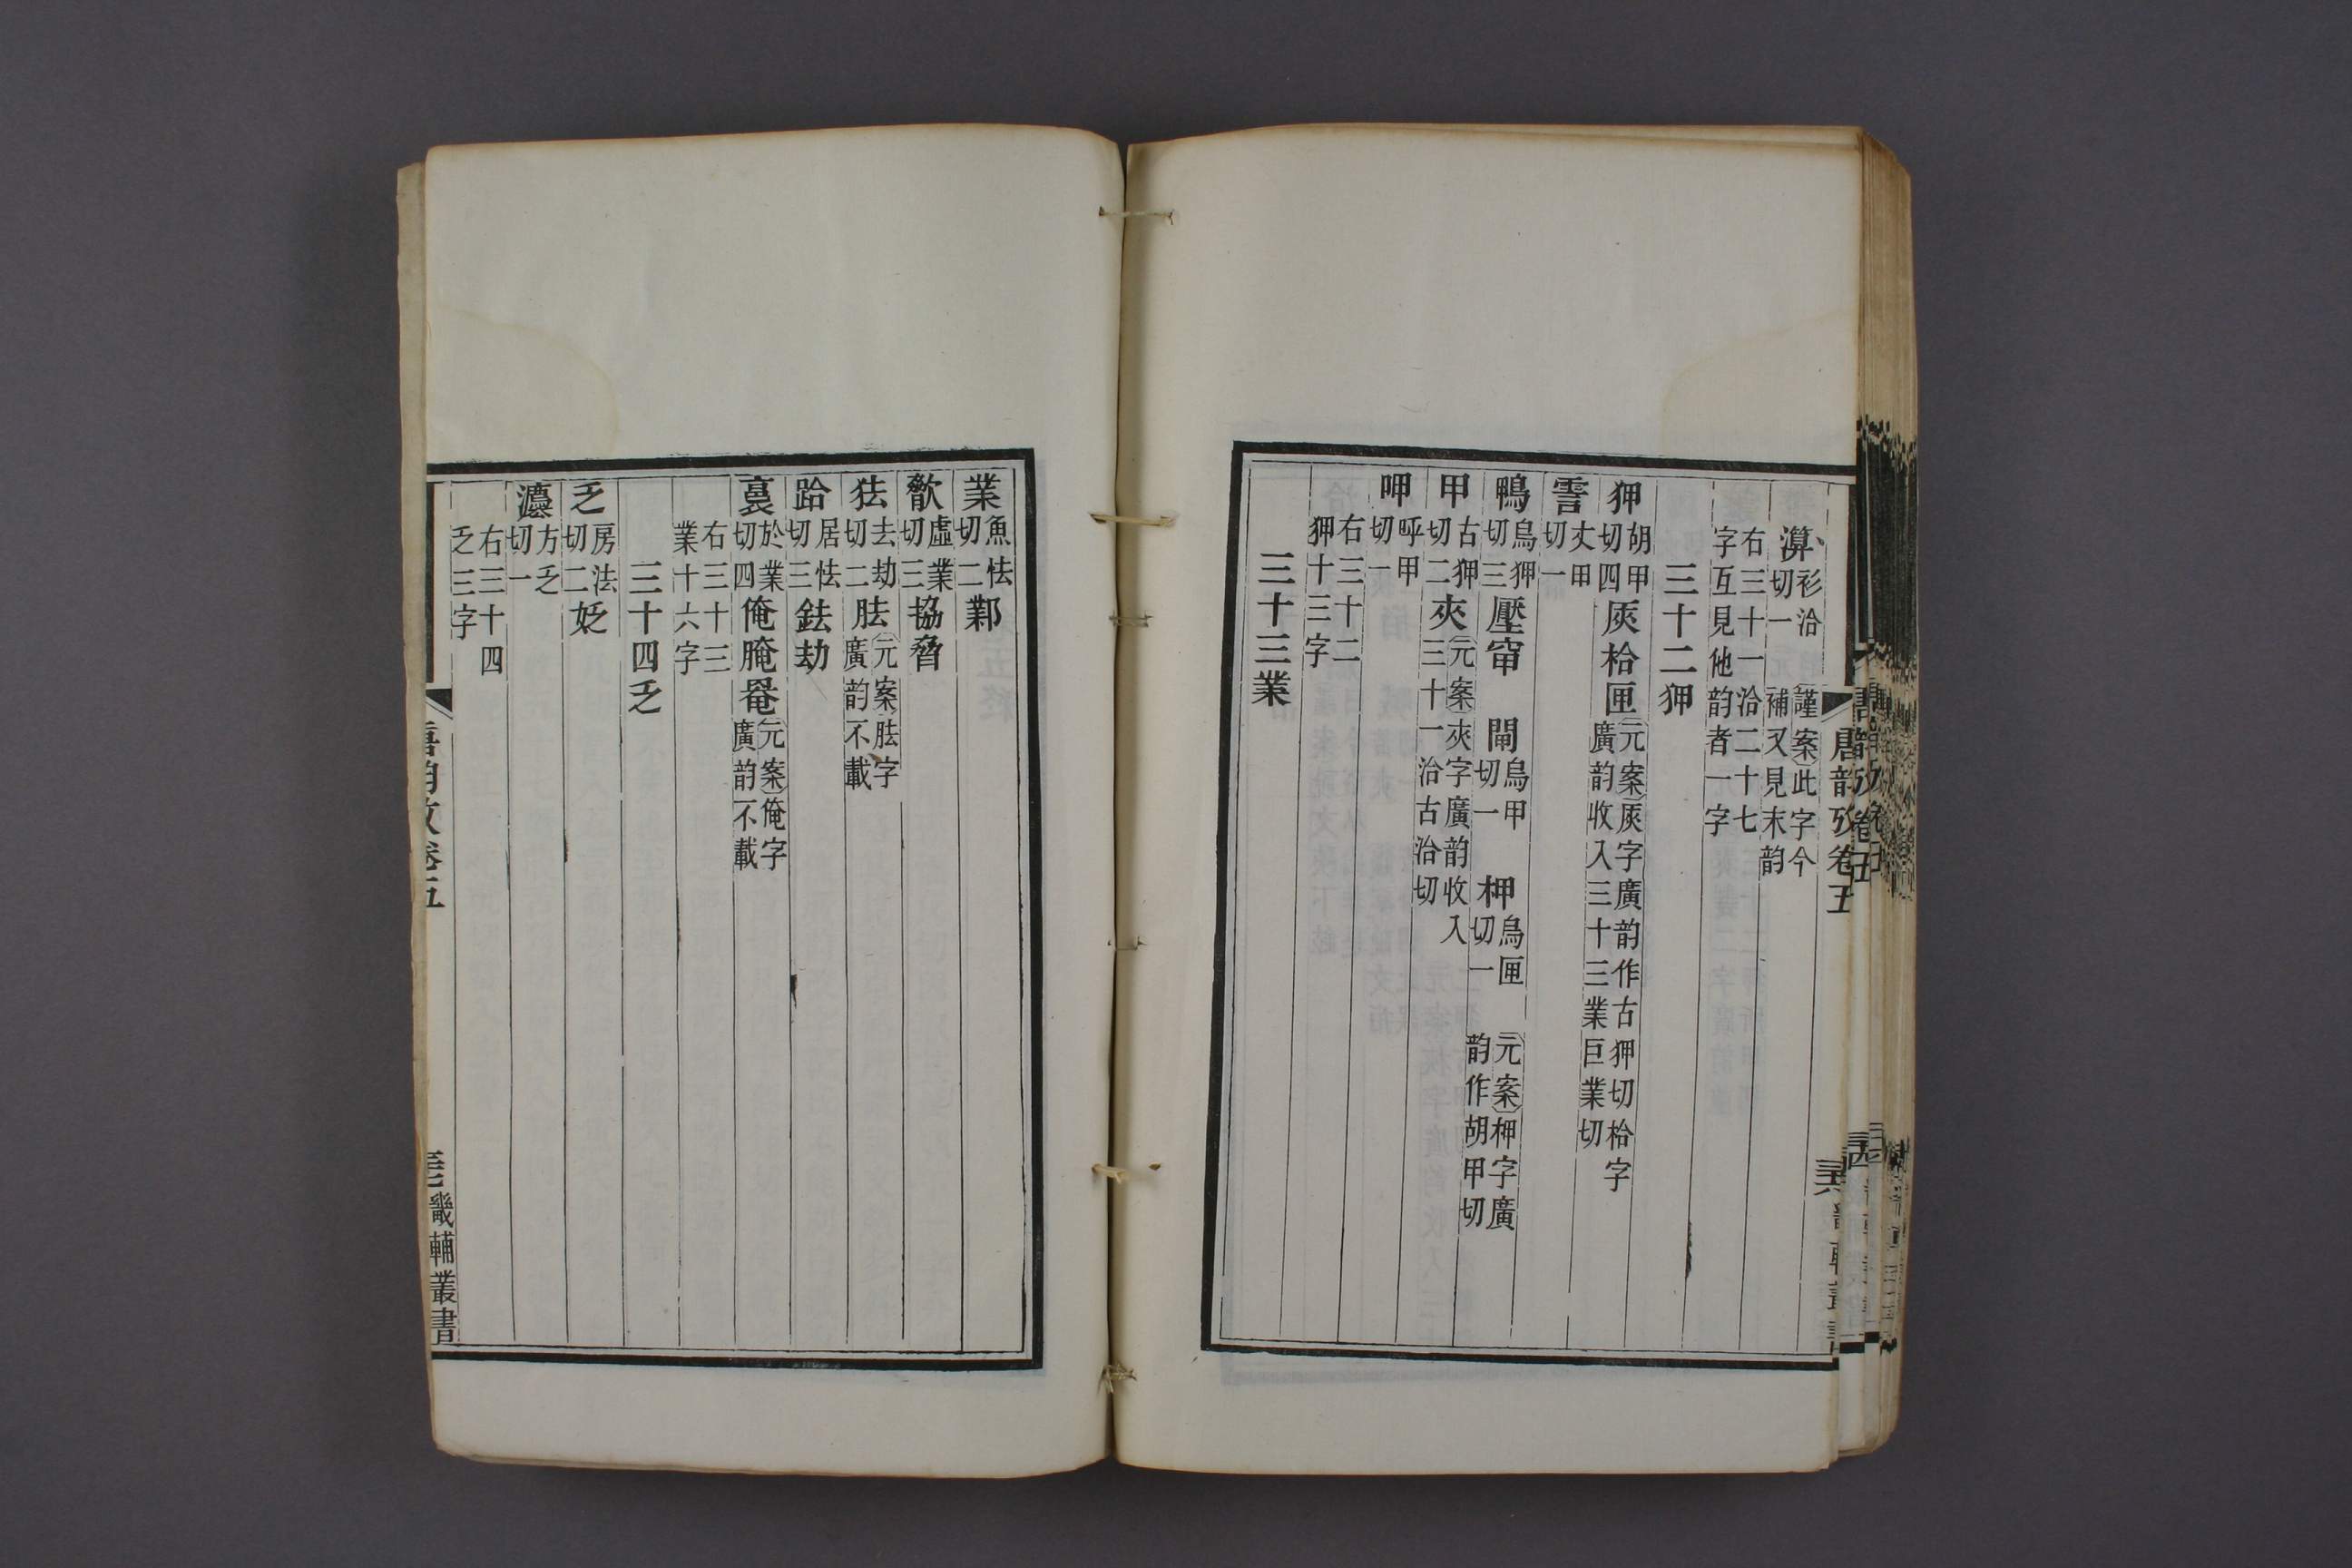 衫洽切一謹案此字今補又見末韵
右三十一洽二十七字互見他韵者一字
三十二狎
狎胡甲切四㡺枱匣元案㡺字廣韵作古狎切枱字廣韵收入三十三業巨業切
霅丈甲切一
鴨烏狎切三壓窜閘烏甲切一柙烏匣切一元案柙字廣韵作胡甲切
甲古狎切二夾元案夾字廣韵收入三十一洽古洽切
呷呼甲切一
右三十二狎十三字
三十三業
唐韵攷卷五
畿輔叢書
業魚怯切二鄴
歙虛業切三協脅
㹤去劫切二胠元案胠字廣韵不載
跲居怯切三鉣劫
裛於業切四俺腌罨元案俺字廣韵不載
右三十三業十六字
三十四乏
乏房法切二姂
灋方乏切一
右三十四乏三字
唐韵攷卷五
畿輔叢書